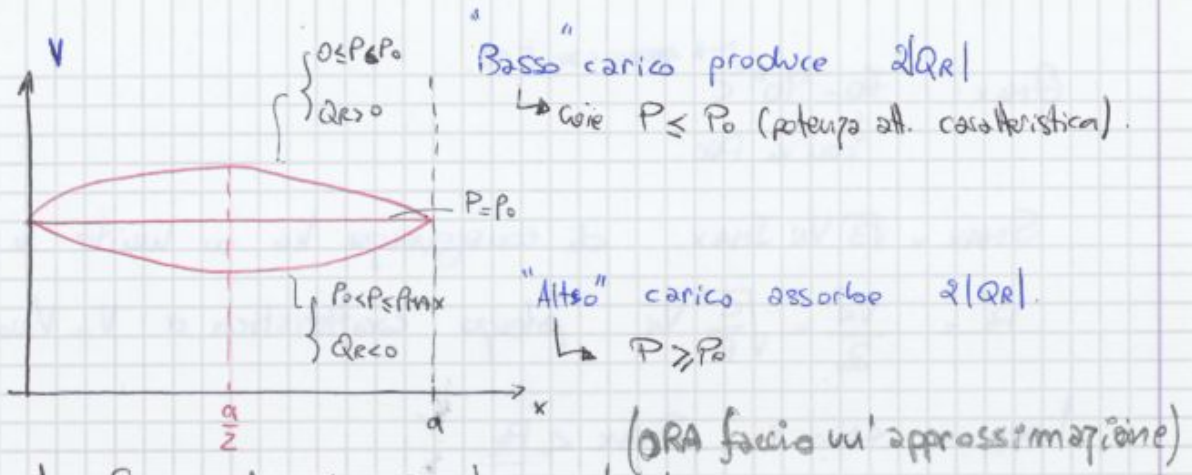 V
0≤P≤P₀
QR>0
"Basso" carico produce 2|QR|
↳ cioè P ≤ P₀ (potenza att. caratteristica).
P=P₀
P₀≤P≤Pmax
QR<0
"Alto" carico assorbe 2|QR|.
↳ P ≥ P₀
a/2
a
x
(ORA faccio un' approssimazione)